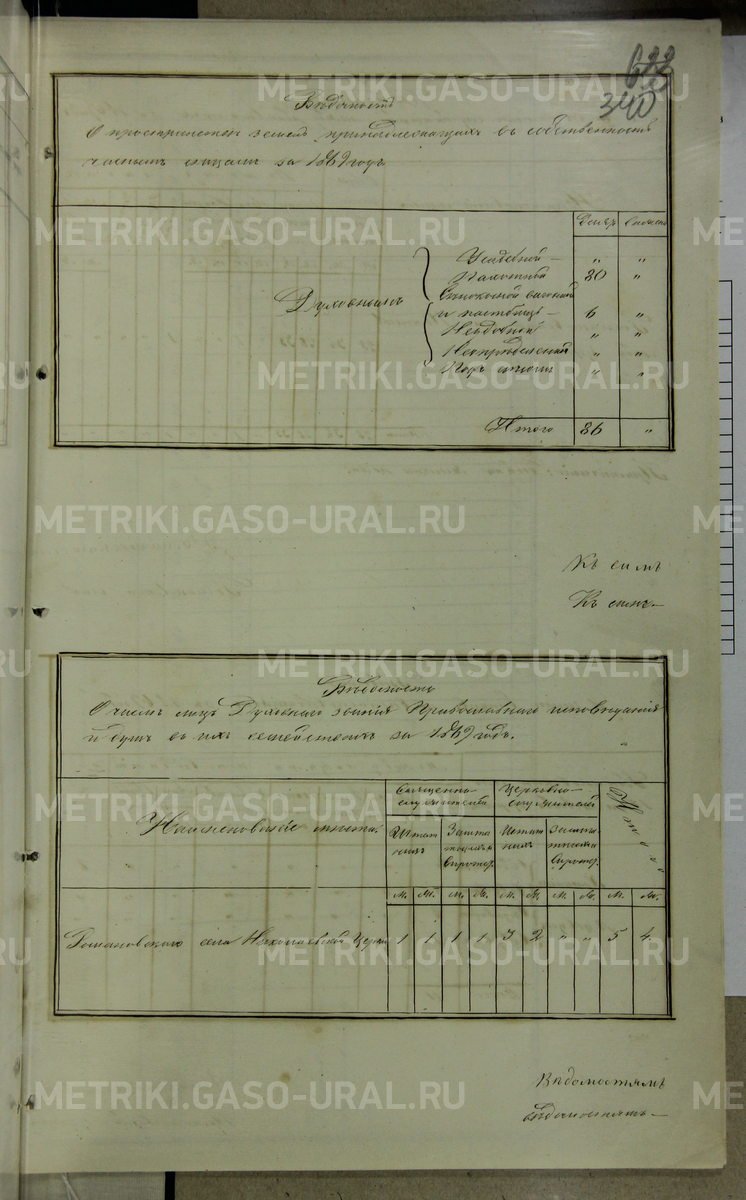 688
340
Вѣдомость
О пространствѣ земель принадлежащихъ въ собственность
частнымъ лицамъ за 1869 годъ
Десят. сажень
Усадебной — „ „
Пахотной 30 „
Духовнымъ
Сѣнокосной выгонной
и пастбищъ — 6 „
Неудобной „ „
Неопредѣленной „ „
Подъ лѣсомъ „ „
Итого 36 „
Къ симъ
Къ симъ —
Вѣдомость
О числѣ лицъ Духовнаго званія Православнаго исповѣданія
и душъ въ ихъ семействахъ за 1869 годъ.
Наименованіе мѣстъ.
Священно-служителей
Церковно-служителей
Итого
Штатныхъ
Заштатныхъ и сиротъ
Штатныхъ
Заштатныхъ и сиротъ
м. ж. м. ж. м. ж. м. ж. м. ж.
Романовскаго села Николаевской Церкви 1 1 1 1 3 2 „ „ 5 4
Вѣдомостямъ
вѣдомостямъ —
METRIKI.GASO-URAL.RU